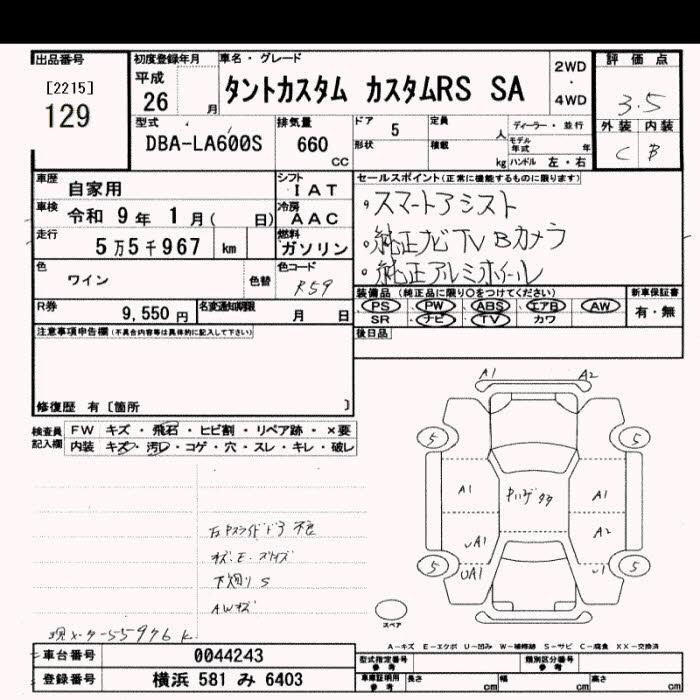 出品番号
[2215]
129
初度登録年月
平成
26 月
車名・グレード
タントカスタム カスタムRS SA
2WD
・
4WD
評価点
3.5
外装 内装
C B
型式
DBA-LA600S
排気量
660
CC
ドア 5
形状
定員 人
積載 kg
ディーラー・並行
モデル年式 年
ハンドル 左・右
車歴 自家用
シフト
IAT
車検 令和 9年 1月( 日)
冷房
AAC
走行 5万5千967 km
燃料
ガソリン
色 ワイン 色替
色コード
R59
R券 9,550円
名変通知期限 月 日
セールスポイント(正常に機能するものに限ります)
・スマートアシスト
・純正ナビTVBカメラ
・純正アルミホイール
装備品 (純正品に限り○をつけてください)
PS PW ABS エアB AW
SR ナビ TV カワ
新車保証書
有・無
後日品
注意事項申告欄(不具合内容等は具体的に記入して下さい)
修復歴 有〔箇所 〕
検査員記入欄
FW キズ・飛石・ヒビ割・リペア跡・×要
内装 キズ・汚レ・コゲ・穴・スレ・キレ・破レ
A1 A2
5 5
A1 A1
A2
UA1
5 5
UA1 U1
スペア
キズ・E・スリキズ
下廻りS
AWキズ
現メーター55976K
A-キズ E-エクボ U-凹み W-補修跡 S-サビ C-腐食 XX-交換済
車台番号 0044243
登録番号 横浜 581 み 6403
型式指定番号
参考
類別区分番号
参考
車庫証明用
参考
長さ cm 幅 cm 高さ cm